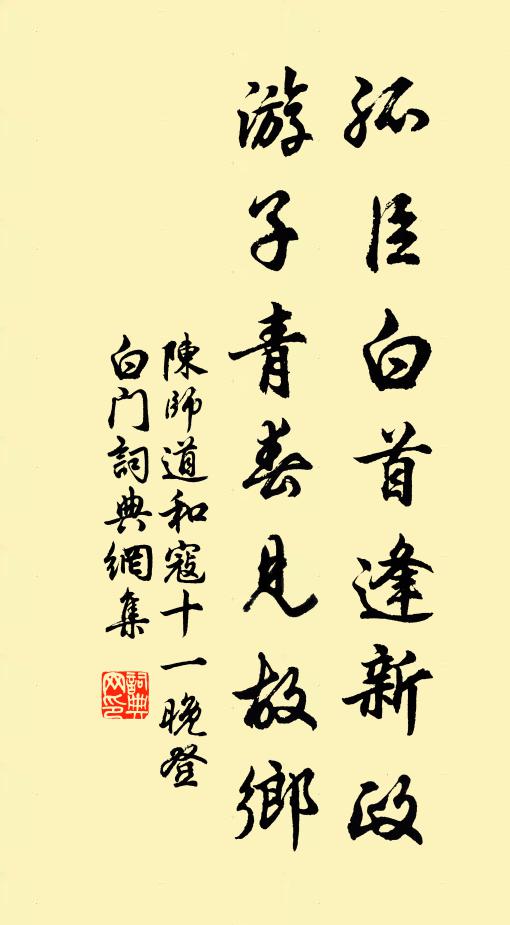 孤臣白首逢新政
游子青春見故鄉
陳師道和寇十一晚登
白门詞典網集
詞典網印